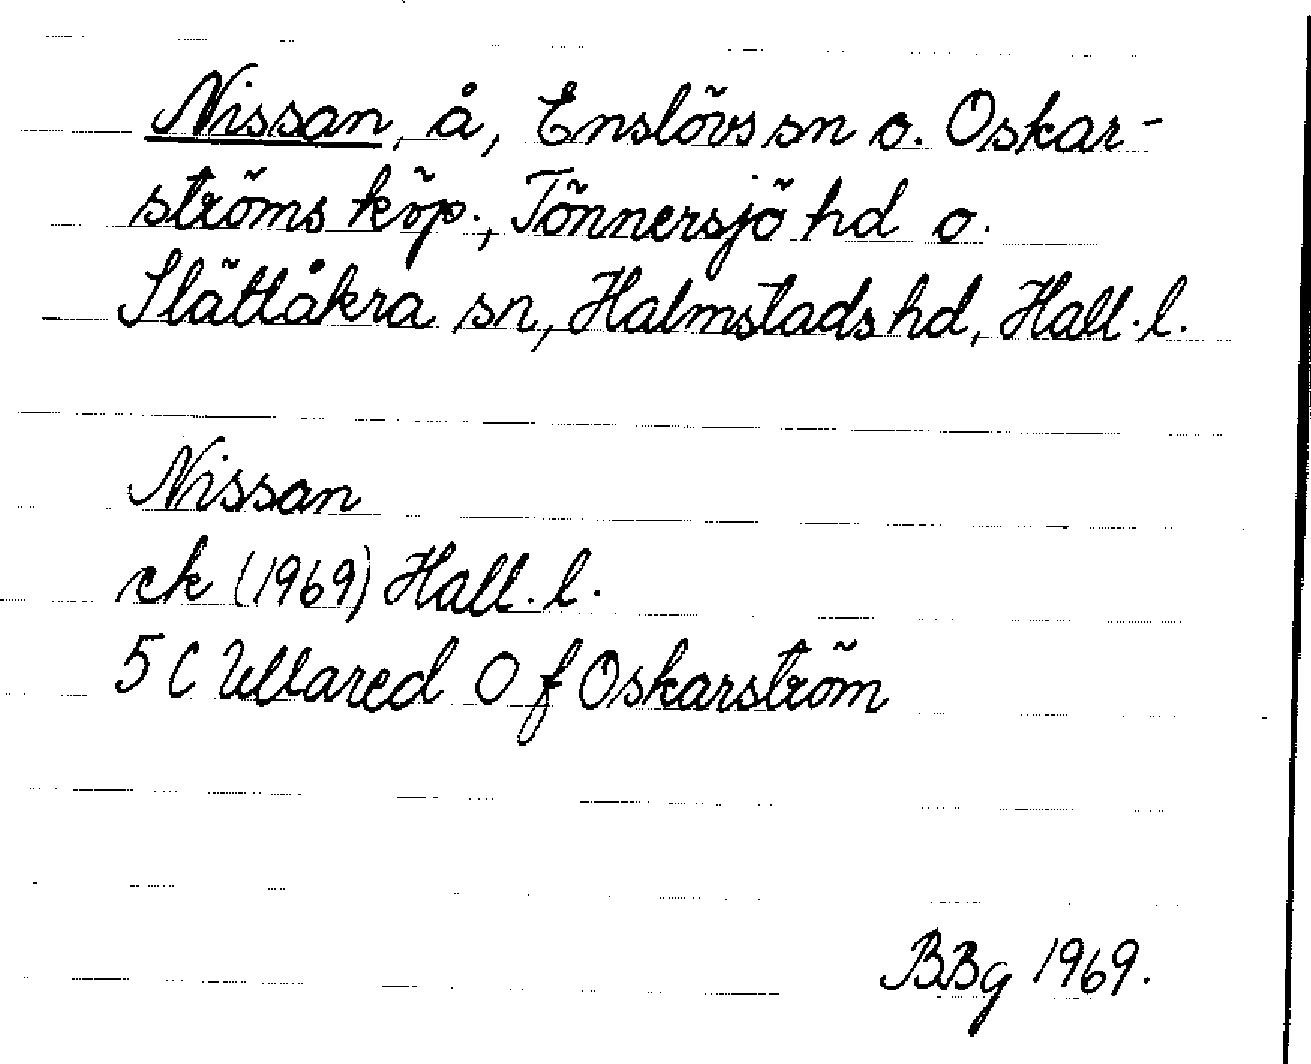 Nissan, å, Enslövs sn o. Oskar-
ströms köp., Tönnersjö hd o.
Slättåkra sn, Halmstads hd, Hall. l.
Nissan
ek (1969) Hall. l.
5 C Ullared O f Oskarström
BBg 1969.